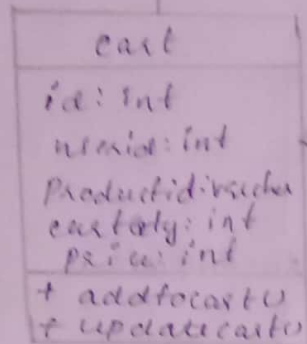 cart
id: int
userid: int
Productid: varchar
cartqty: int
price: int
+ addtocart()
+ updatecart()